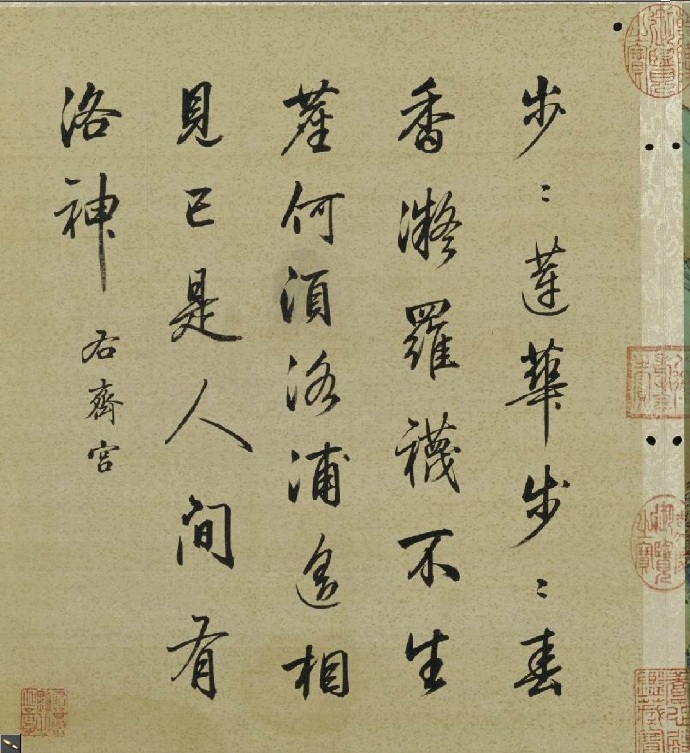 步々蓮華步々春
香凝羅襪不生
塵何須洛浦遙相
見已是人間有
洛神
右齊宮